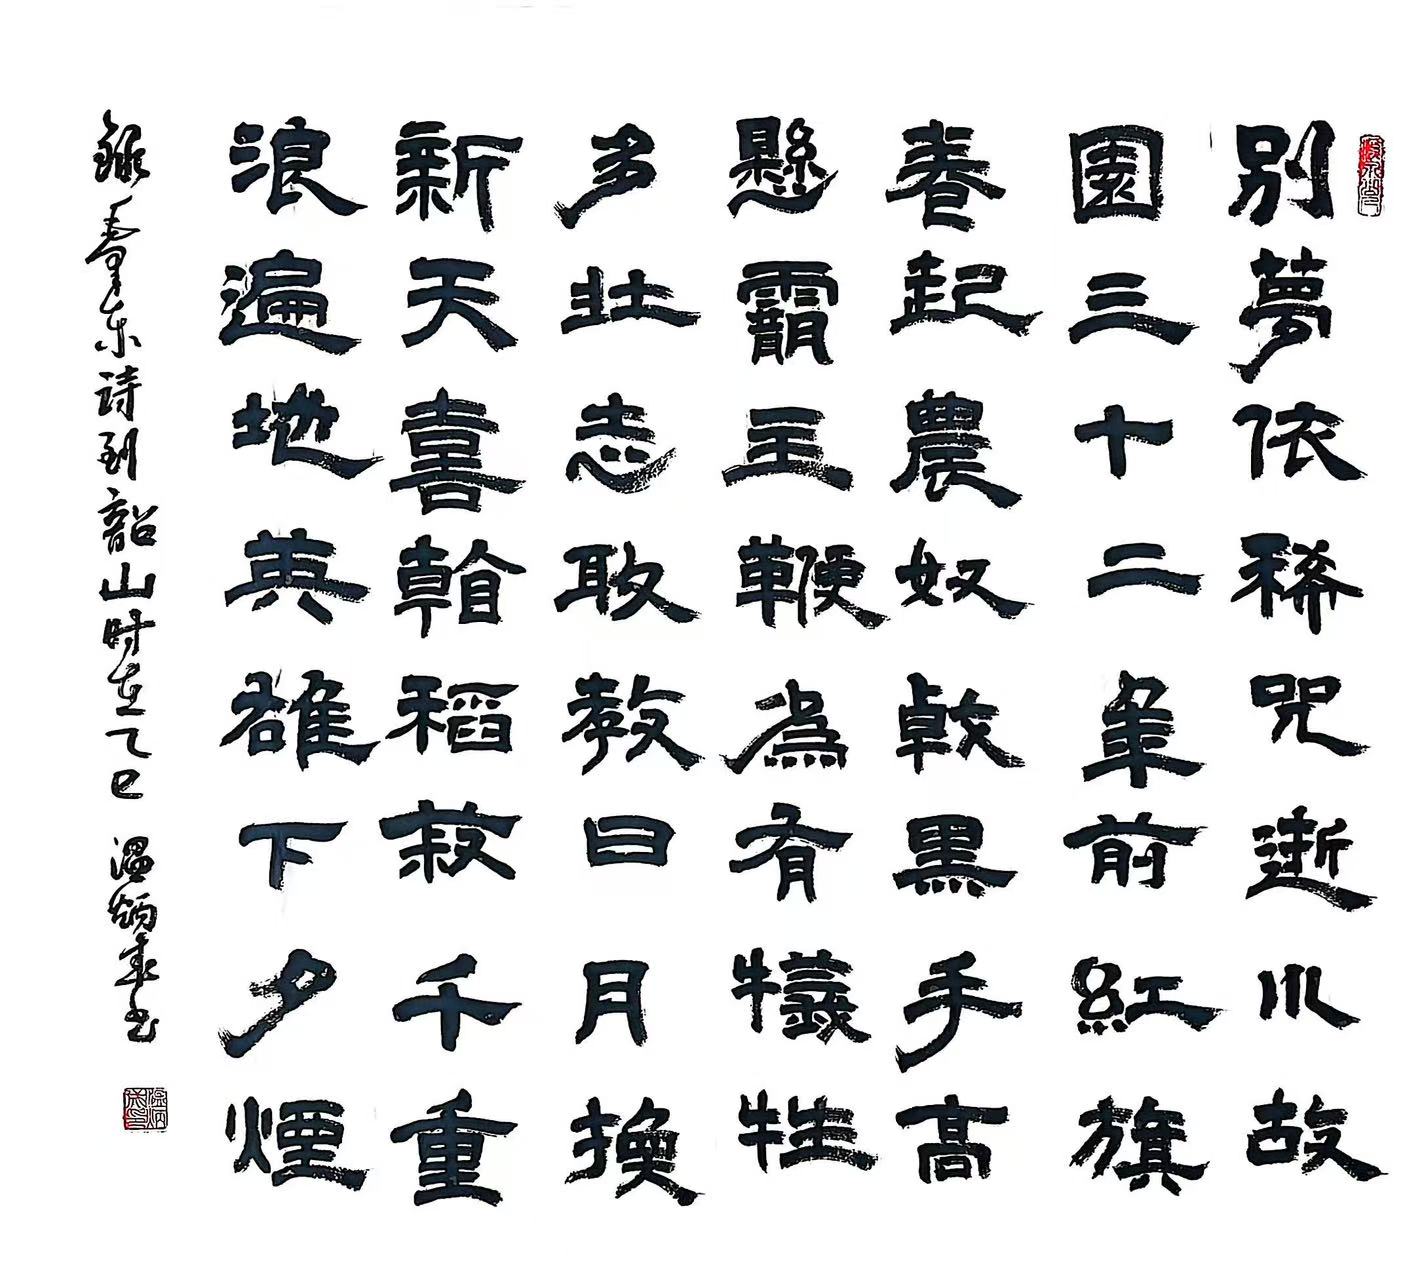 别夢依稀咒逝川故
園三十二年前紅旗
卷起農奴戟黑手高
懸霸主鞭為有犧牲
多壮志敢教日月換
新天喜看稻菽千重
浪遍地英雄下夕煙
錄毛泽东诗到韶山时在乙巳 温炳书